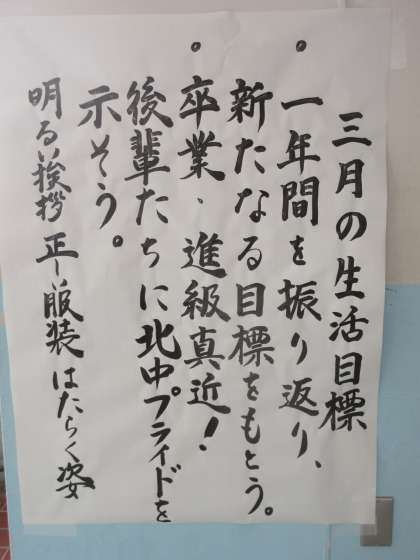 三月の生活目標
・一年間を振り返り、
新たなる目標をもとう。
・卒業、進級真近!
後輩たちに北中プライドを
示そう。
明るい挨拶 正しい服装 はたらく姿